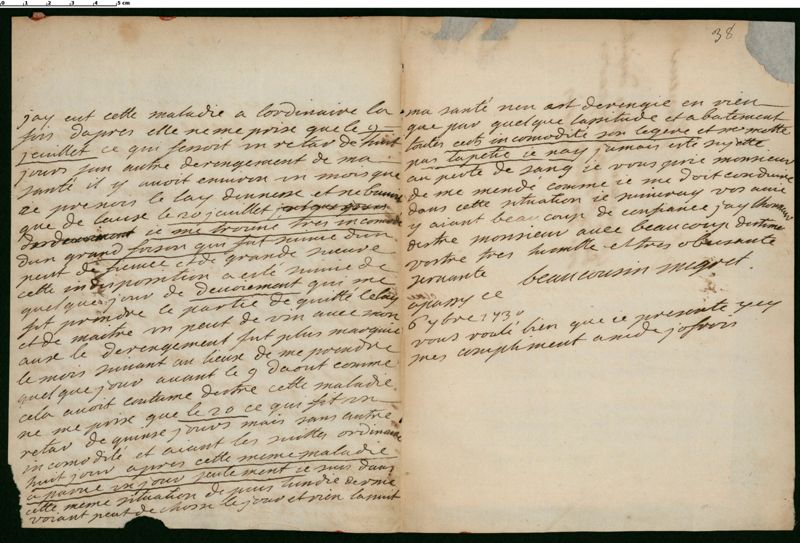 0 1 2 3 4 5 cm
38
jay eut cette maladie a lordinaire la
fois dapres elle ne me prise que le 9
jeuillet ce qui fesoit un retar de huit
jours sun autre derengement de ma
santé il y avoit environ un mois que
je prenois le lay dannesse et ne beuvois
que de lause le 20 jeuillet
je me trouve tres incomodé
dun grand frison qui fut suivie dun
peut de fievvre et de grande sueure
cette indisposition a esté suivie de
quelque jour de devoiement qui me
fit prendre le partie de quitté le lay
et de maitre un peut de vin avec mon
ause le derengement fut plus marqué
le mois suivant au lieuse de me prendre
quelque jour avant le 9 daout comme
cela avoit coutume destre cette maladie
ne me prise que le 20 ce qui fit un
retar de quinse jours mais sans autre
incomodité et aiant les suittes ordinaire
huit jour apres cette meme maladie
a parue un jour seulement je suis dans
cette meme situation depuis lundie dernié
voiant peut de chose le jour et rien la nuit
ma santé neu est derengie en rien
que par quelque lasitude et abatement
toutes cest incomodité son legere et ne motte
pas lapetie je nay jamais esté sujette
au perte de sang je vous prie monsieur
de me mende comme je me doit conduire
dans cette situation je suiveray vos avis
y aiant beaucoup de confiance jay lhonneur
destre monsieur avec beaucoup destime
vostre tres humble et tres obeisante
servante beaucousin migret
a passy ce
6 7bre 1730
vous voulé bien que ce presente y ey
mes compliment a mde jofrois